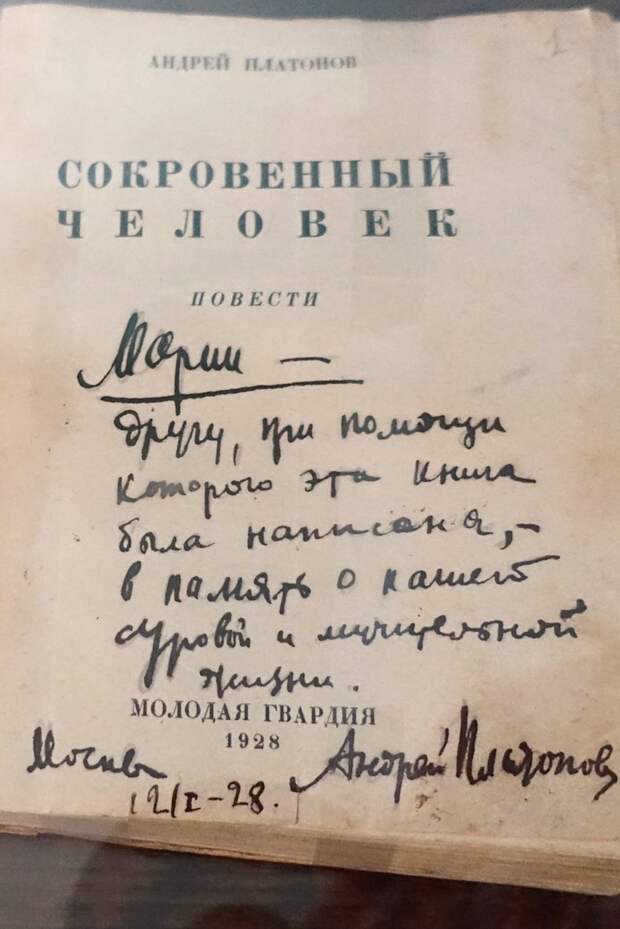 1
АНДРЕЙ ПЛАТОНОВ
СОКРОВЕННЫЙ
ЧЕЛОВЕК
ПОВЕСТИ
Марии —
другу, при помощи
которого эта книга
была написана, –
в память о нашей
суровой и мучительной
жизни.
МОЛОДАЯ ГВАРДИЯ
1928
Москва
12/I–28.
Андрей Платонов